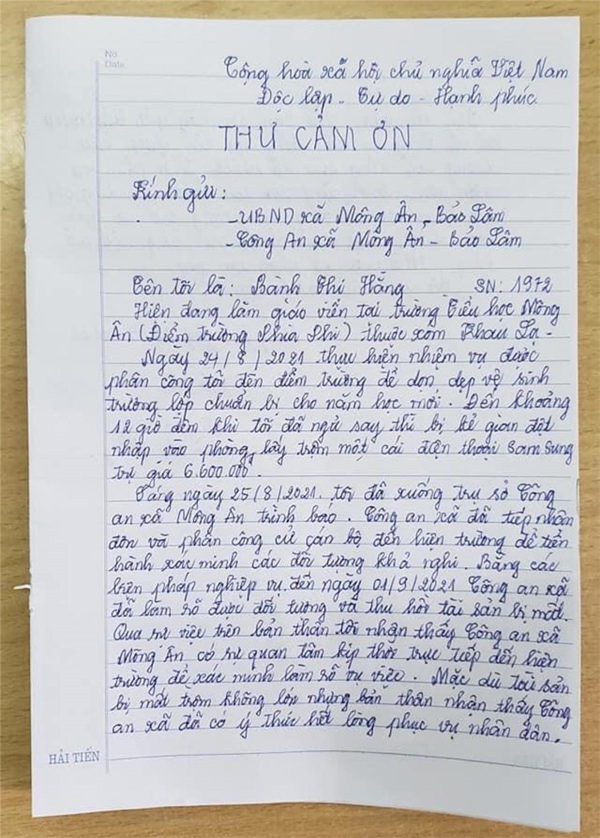 No
Date
Cộng hoà xã hội chủ nghĩa Việt Nam
Độc lập - Tự do - Hạnh phúc
THƯ CẢM ƠN
Kính gửi :
- UBND xã Mông Ân - Bảo Lâm
- Công An xã Mông Ân - Bảo Lâm
Tên tôi là : Bành Thị Hằng SN : 1972
Hiện đang làm giáo viên tại trường Tiểu học Mông
Ân (Điểm trường Phia Phi) thuộc xóm Khau Lạ -
Ngày 24/8/2021 thực hiện nhiệm vụ được
phân công tôi đến điểm trường để dọn dẹp vệ sinh
trường lớp chuẩn bị cho năm học mới. Đến khoảng
12 giờ đêm khi tôi đã ngủ say thì bị kẻ gian đột
nhập vào phòng lấy trộm một cái điện thoại Sam Sung
trị giá 6.600.000đ.
Sáng ngày 25/8/2021. tôi đã xuống trụ sở Công
an xã Mông Ân trình báo. Công an xã đã tiếp nhận
đơn và phân công cử cán bộ đến hiện trường để tiến
hành xác minh các đối tượng khả nghi. Bằng các
biện pháp nghiệp vụ đến ngày 01/9/2021 Công an xã
đã làm rõ được đối tượng và thu hồi tài sản bị mất.
Qua sự việc trên bản thân tôi nhận thấy Công an xã
Mông Ân có sự quan tâm kịp thời trực tiếp đến hiện
trường để xác minh làm rõ vụ việc. Mặc dù tài sản
bị mất trộm không lớn nhưng bản thân nhận thấy Công
an xã đã có ý thức hết lòng phục vụ nhân dân.
HẢI TIẾN